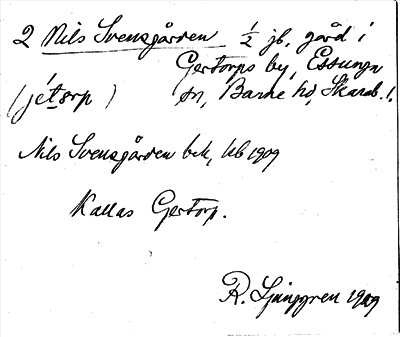 2 Nils Svensgården 1/2 jb. gård i
Gertorps by, Essunga
(jétorp) sn, Barne hd, Skarab. l.
Nils Svensgården bek, kb 1909
Kallas Gertorp.
R. Ljunggren 1909